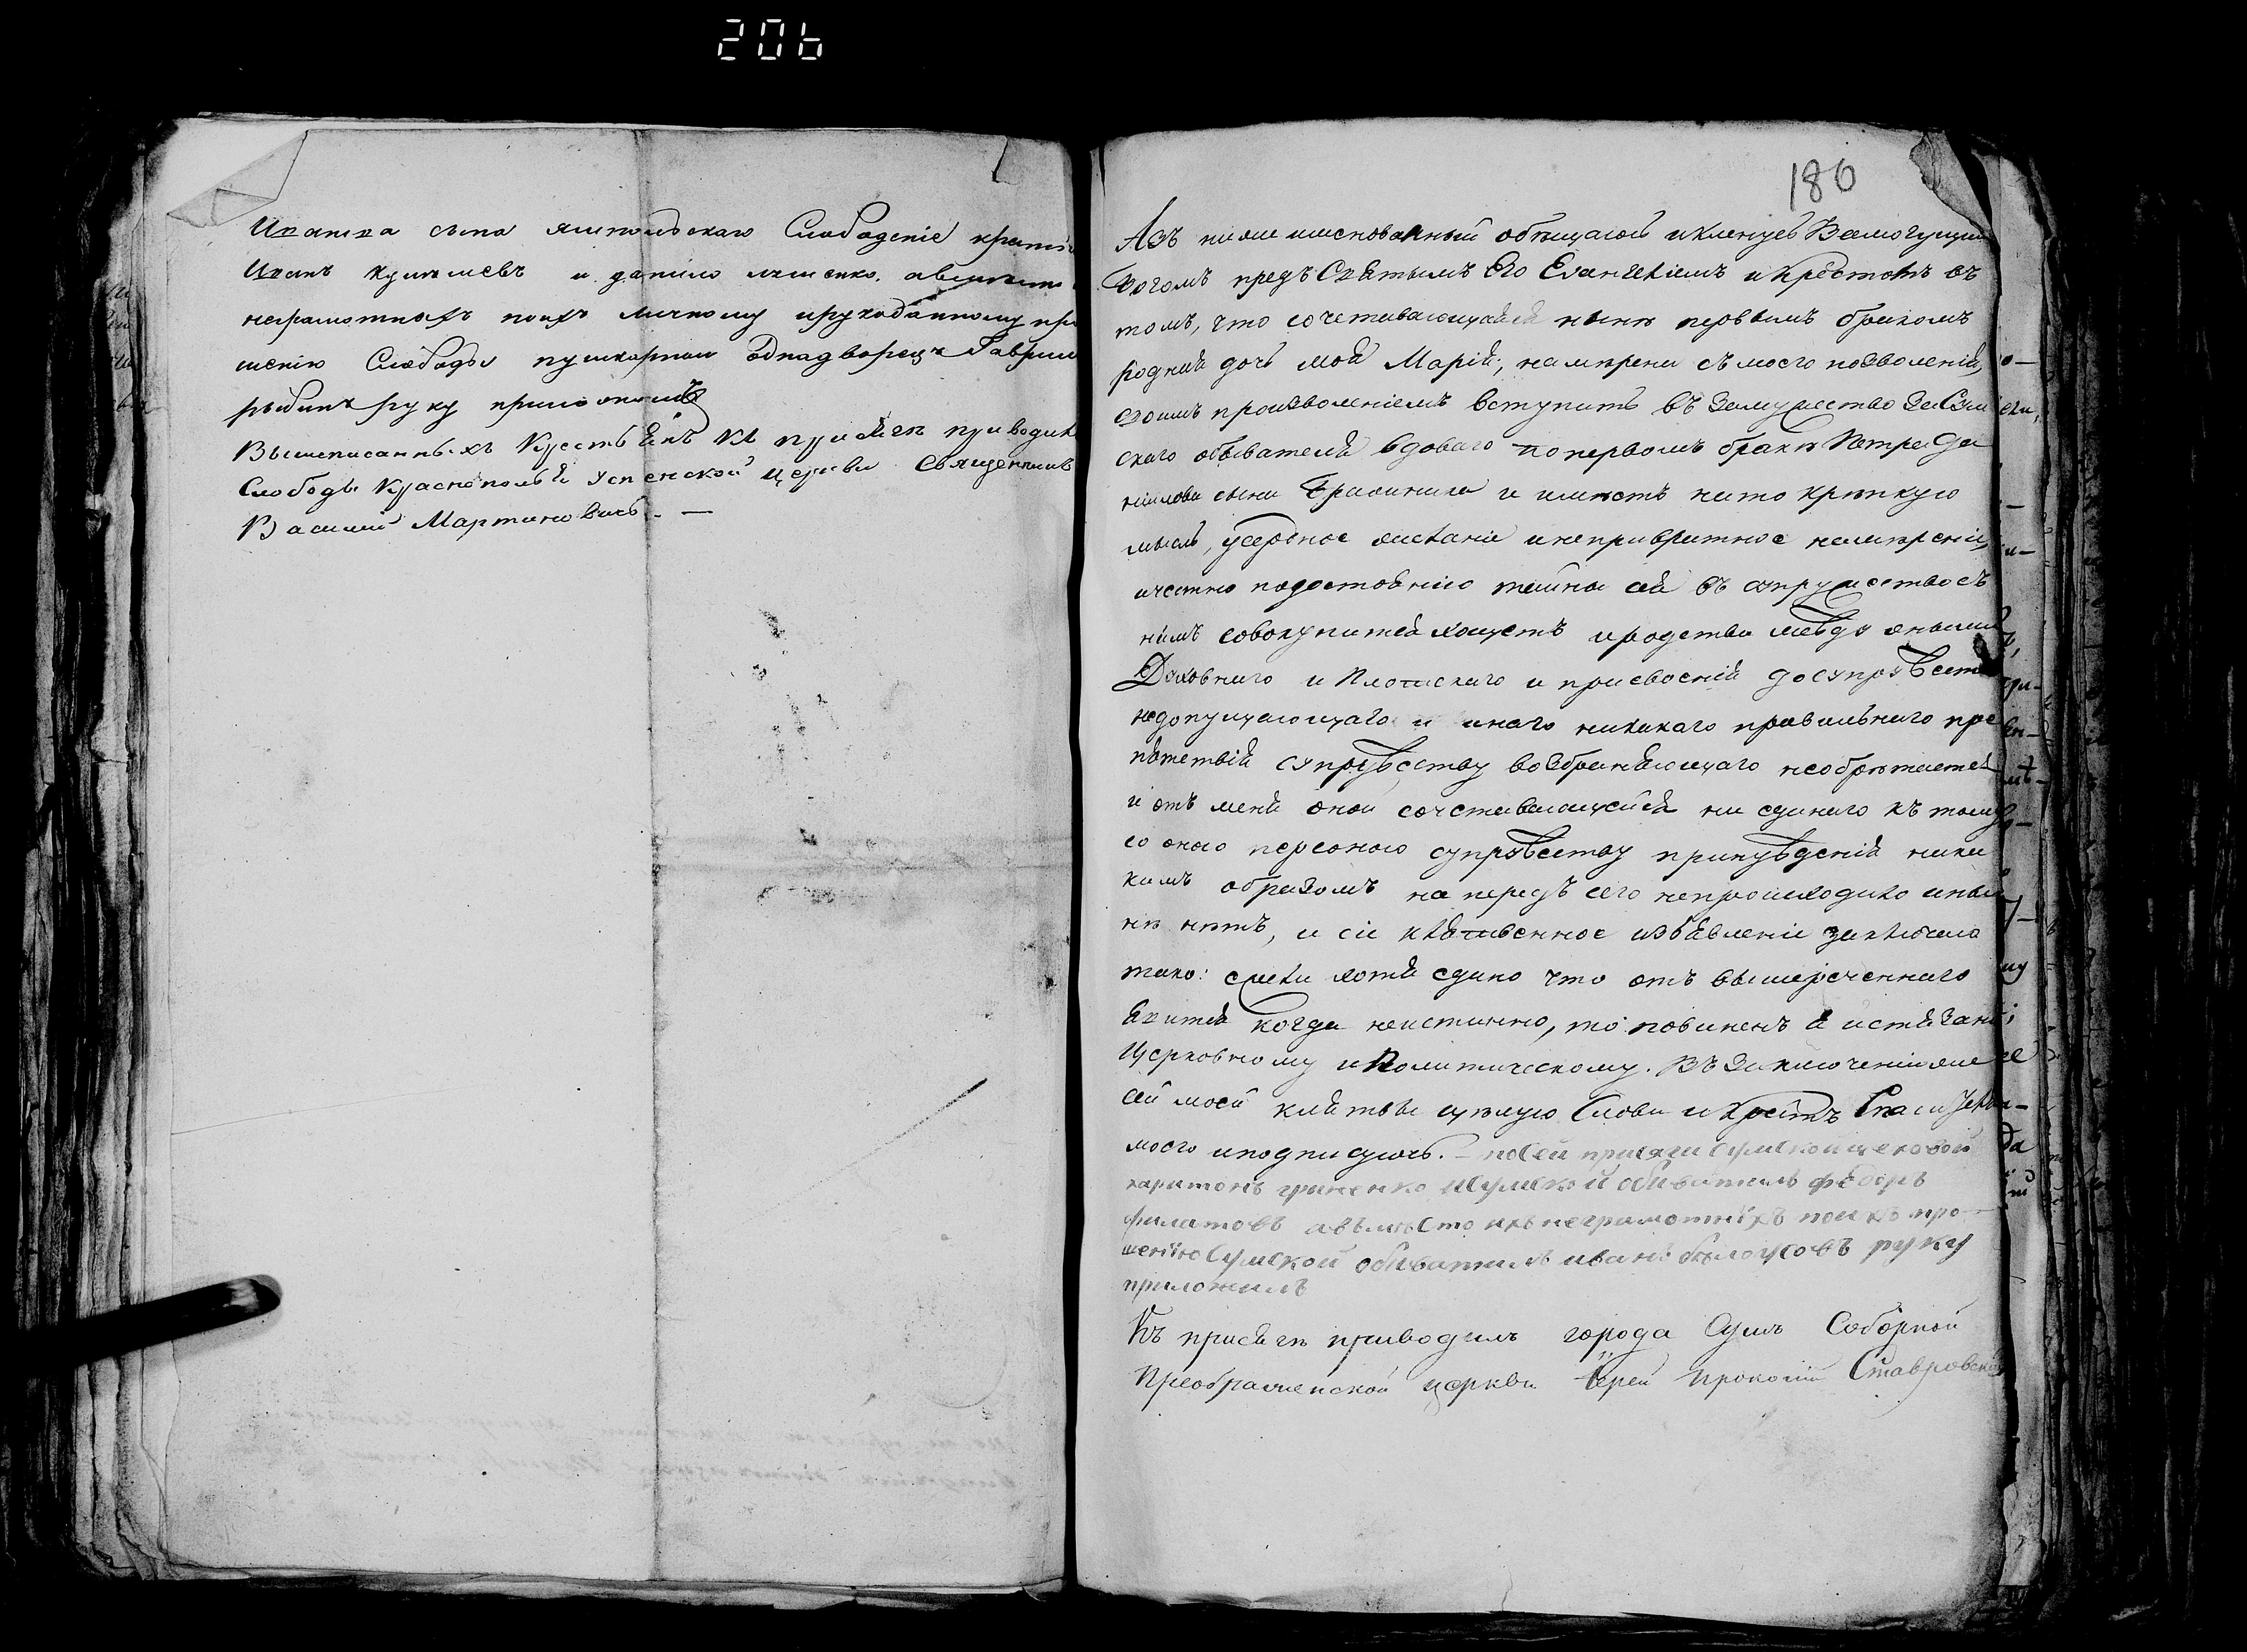 206
Ивана сына Слободскіе
Иванъ и данило
неграмотныхъ поихъ личному ирукоданному про
шению Слободы пушкарной однадворецъ Гаврило
рыбинъ руку приложилъ
Вышеписанныхъ Крестьянъ къ присягѣ приводилъ
Слободы Краснополья Успенской Церкви Священникъ
Василий Мартиновичь. —
180
Азъ нижеименованный обѣщаюсь иклянусь Всемогущимъ
Богомъ предъ Святымъ Его Евангеліемъ и Крестомъ въ
томъ, что сочетавающаяся нынѣ первымъ бракомъ
родная дочь моя Марія, намѣрена съ моего позволенія,
своимъ произволеніемъ вступить въ замужество за Сум
скаго обывателя вдоваго по первомъ бракѣ Петра Да
нилова сына и имѣетъ на то крѣпкую
мысль, усердное желаніе и непривратное намѣреніе,
ичестно подостоянію тайны сей въ супружество съ
нимъ совокупитися хощетъ иродства между оными
Духовнаго и Плотскаго и присвоенія досупружества
недопущающаго и инаго никакого правильнаго пре
пятствія супружеству возбраняющаго необрѣтается
и отъ меня оной сочетавающейся ни единаго къ тому
со оною персоною супружеству принужденія ника
кимъ образомъ на передъ сего непроисходило инын
нѣ нѣтъ, и сіе клятвенное изъявленіе заключаю
тако: ежели хотя едино что отъ вышереченнаго
явится когда неистинно, то повиненъ я истязанію
Церковному иПолитическому. Въ Заключеніи же
сей моей клятвы цѣлую Слова и Крестъ Спасителя
моего иподписуюсь. — посей присяги Сумской цеховой
харитонъ гриненко, исумской обиватиль федоръ
филатовъ авъмѣсто ихъ неграмотнихъ поихъ про—
шению Сумской обиватиль иванъ бѣлоусовъ руку
приложилъ
Къ присягѣ приводилъ города Сумъ Соборной
Преображенской церкви Іерей Прокопій Ставровскій